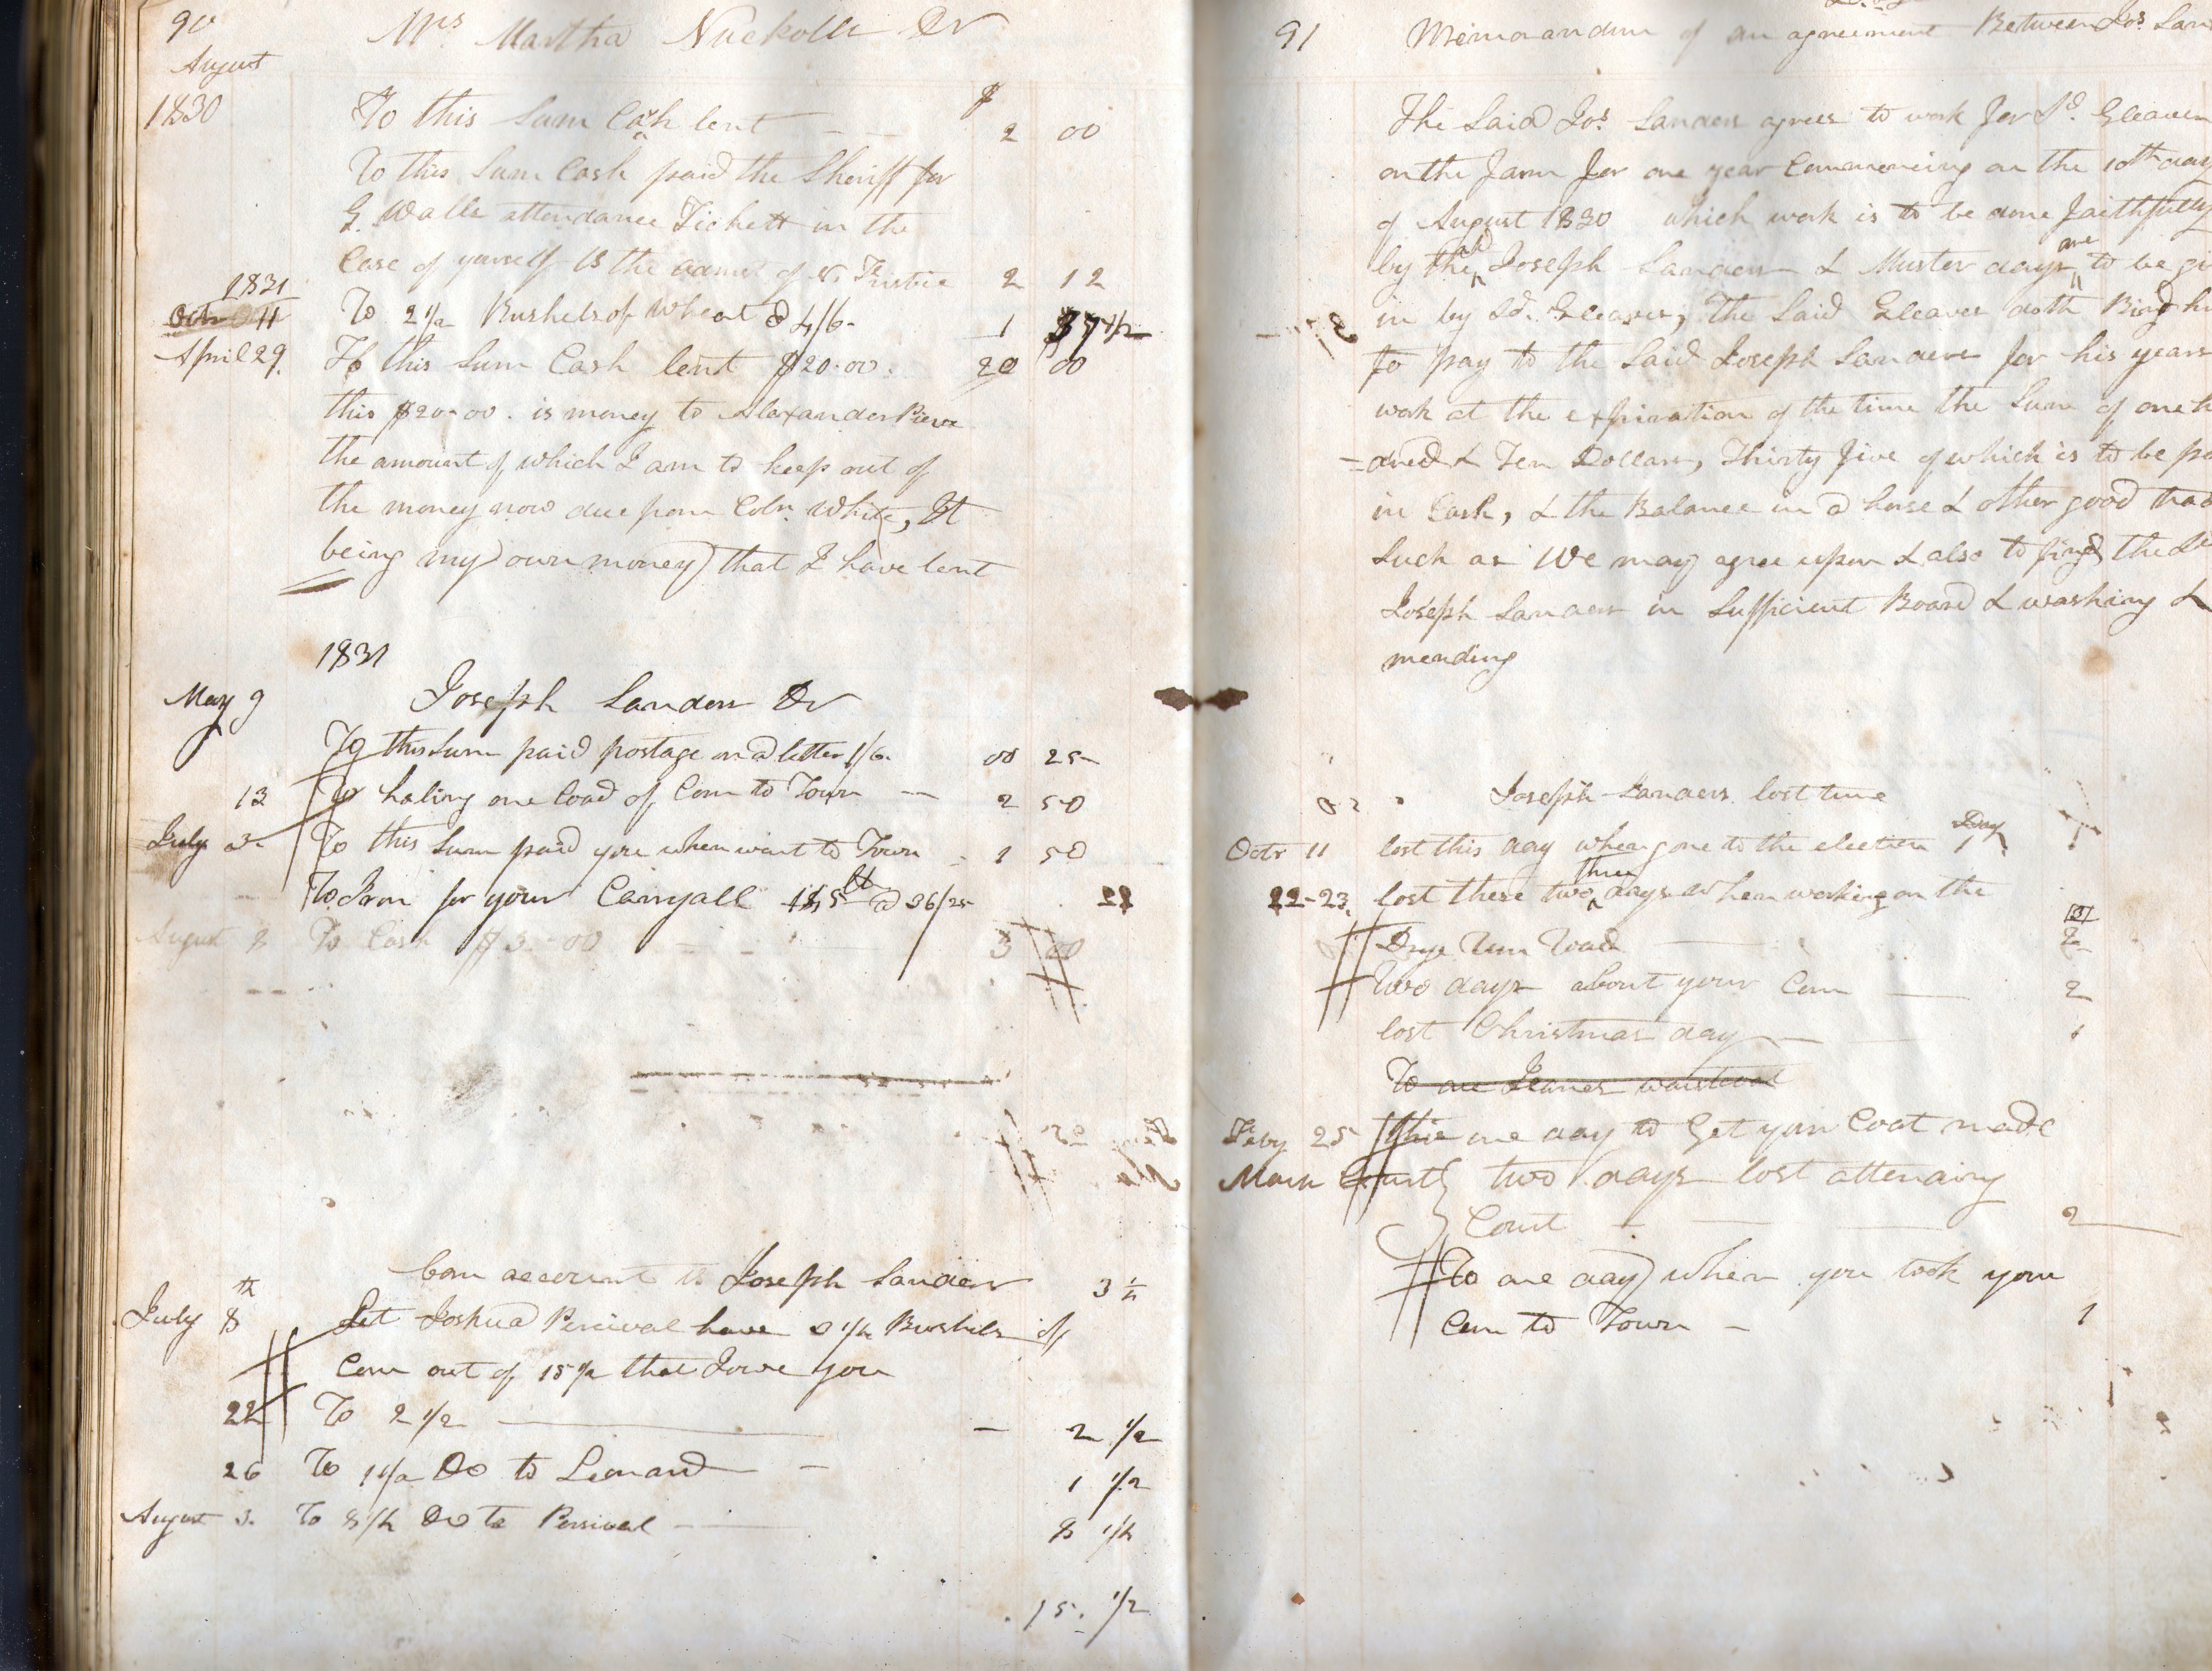 90
Mrs Martha Nuckolls Dr
August
1830
To this Sum Cash lent 2 00
To this Sum Cash paid the Sheriff for
G. Walls attendance Tickett in the
Case of yourself vs the admr of N. Fristie 2 12
1831
Octr 11 To 2 1/2 Bushels of Wheat @ 4/6 1 37 1/2
April 29. To this Sum Cash lent $20.00. 20 00
this $20.00. is money to Alexander Pierce
the amount of which I am to keep out of
the money now due from Coln. White, It
being my own money that I have lent
1831
May 9 Joseph Sanders Dr
To this Sum paid postage on a letter 1/6. 00 25
13 To haling one Load of Corn to Town 2 50
July To this Sum paid you when went to Town 1 50
To Iron for your Carryall
August 8 To Cash $3.00 3 00
Corn account to Joseph Sanders
July 8th Let Joshua Percival have 3 1/2 Bushels of 3 1/2
Corn out of 15 1/2 that I owe you
22 To 2 1/2 2 1/2
26 To 1 1/2 Do to Leonard 1 1/2
August 3. To 8 1/2 Do to Percival 8 1/2
15. 1/2
91
Memorandum of an agreement Between Jos. San
The Said Jos. Sanders agrees to work for Sd. Gleaves
on the farm for one year Commencing on the 10th day
of August 1830 which work is to be done faithfully
by the sd Joseph Sanders & Muster days are to be gi
in by Sd. Gleaves, the Said Gleaves doth Bind hi
to pay to the Said Joseph Sanders for his years
work at the expiration of the time the Sum of one h
=dred & Ten Dollars, Thirty five of which is to be pa
in Cash, & the Balance in a horse & other good trad
Such as We may agree upon & also to find the Sd
Joseph Sanders in Sufficient Board & washing &
mending
Joseph Sanders lost time
Day
Octr 11 lost this day when gone to the election 1
22-23. lost these two three days when working on the
Road 3
two days about your Corn 2
lost Christmas day 1
To one waistcoat
Feby 25 this one day to Get your Coat made
March Court two days lost attending
Court 2
To one day when you took your
Corn to Town 1